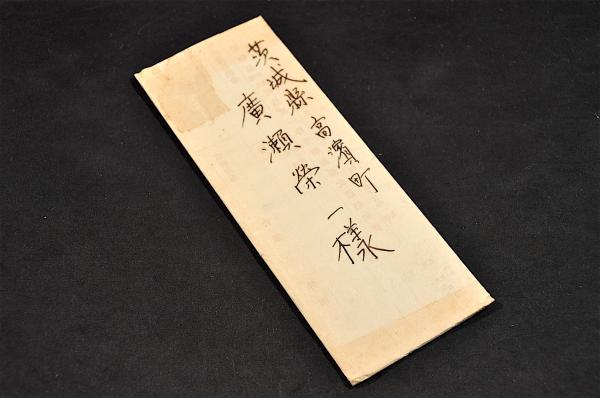 茨城縣高濱町
廣瀬榮一様